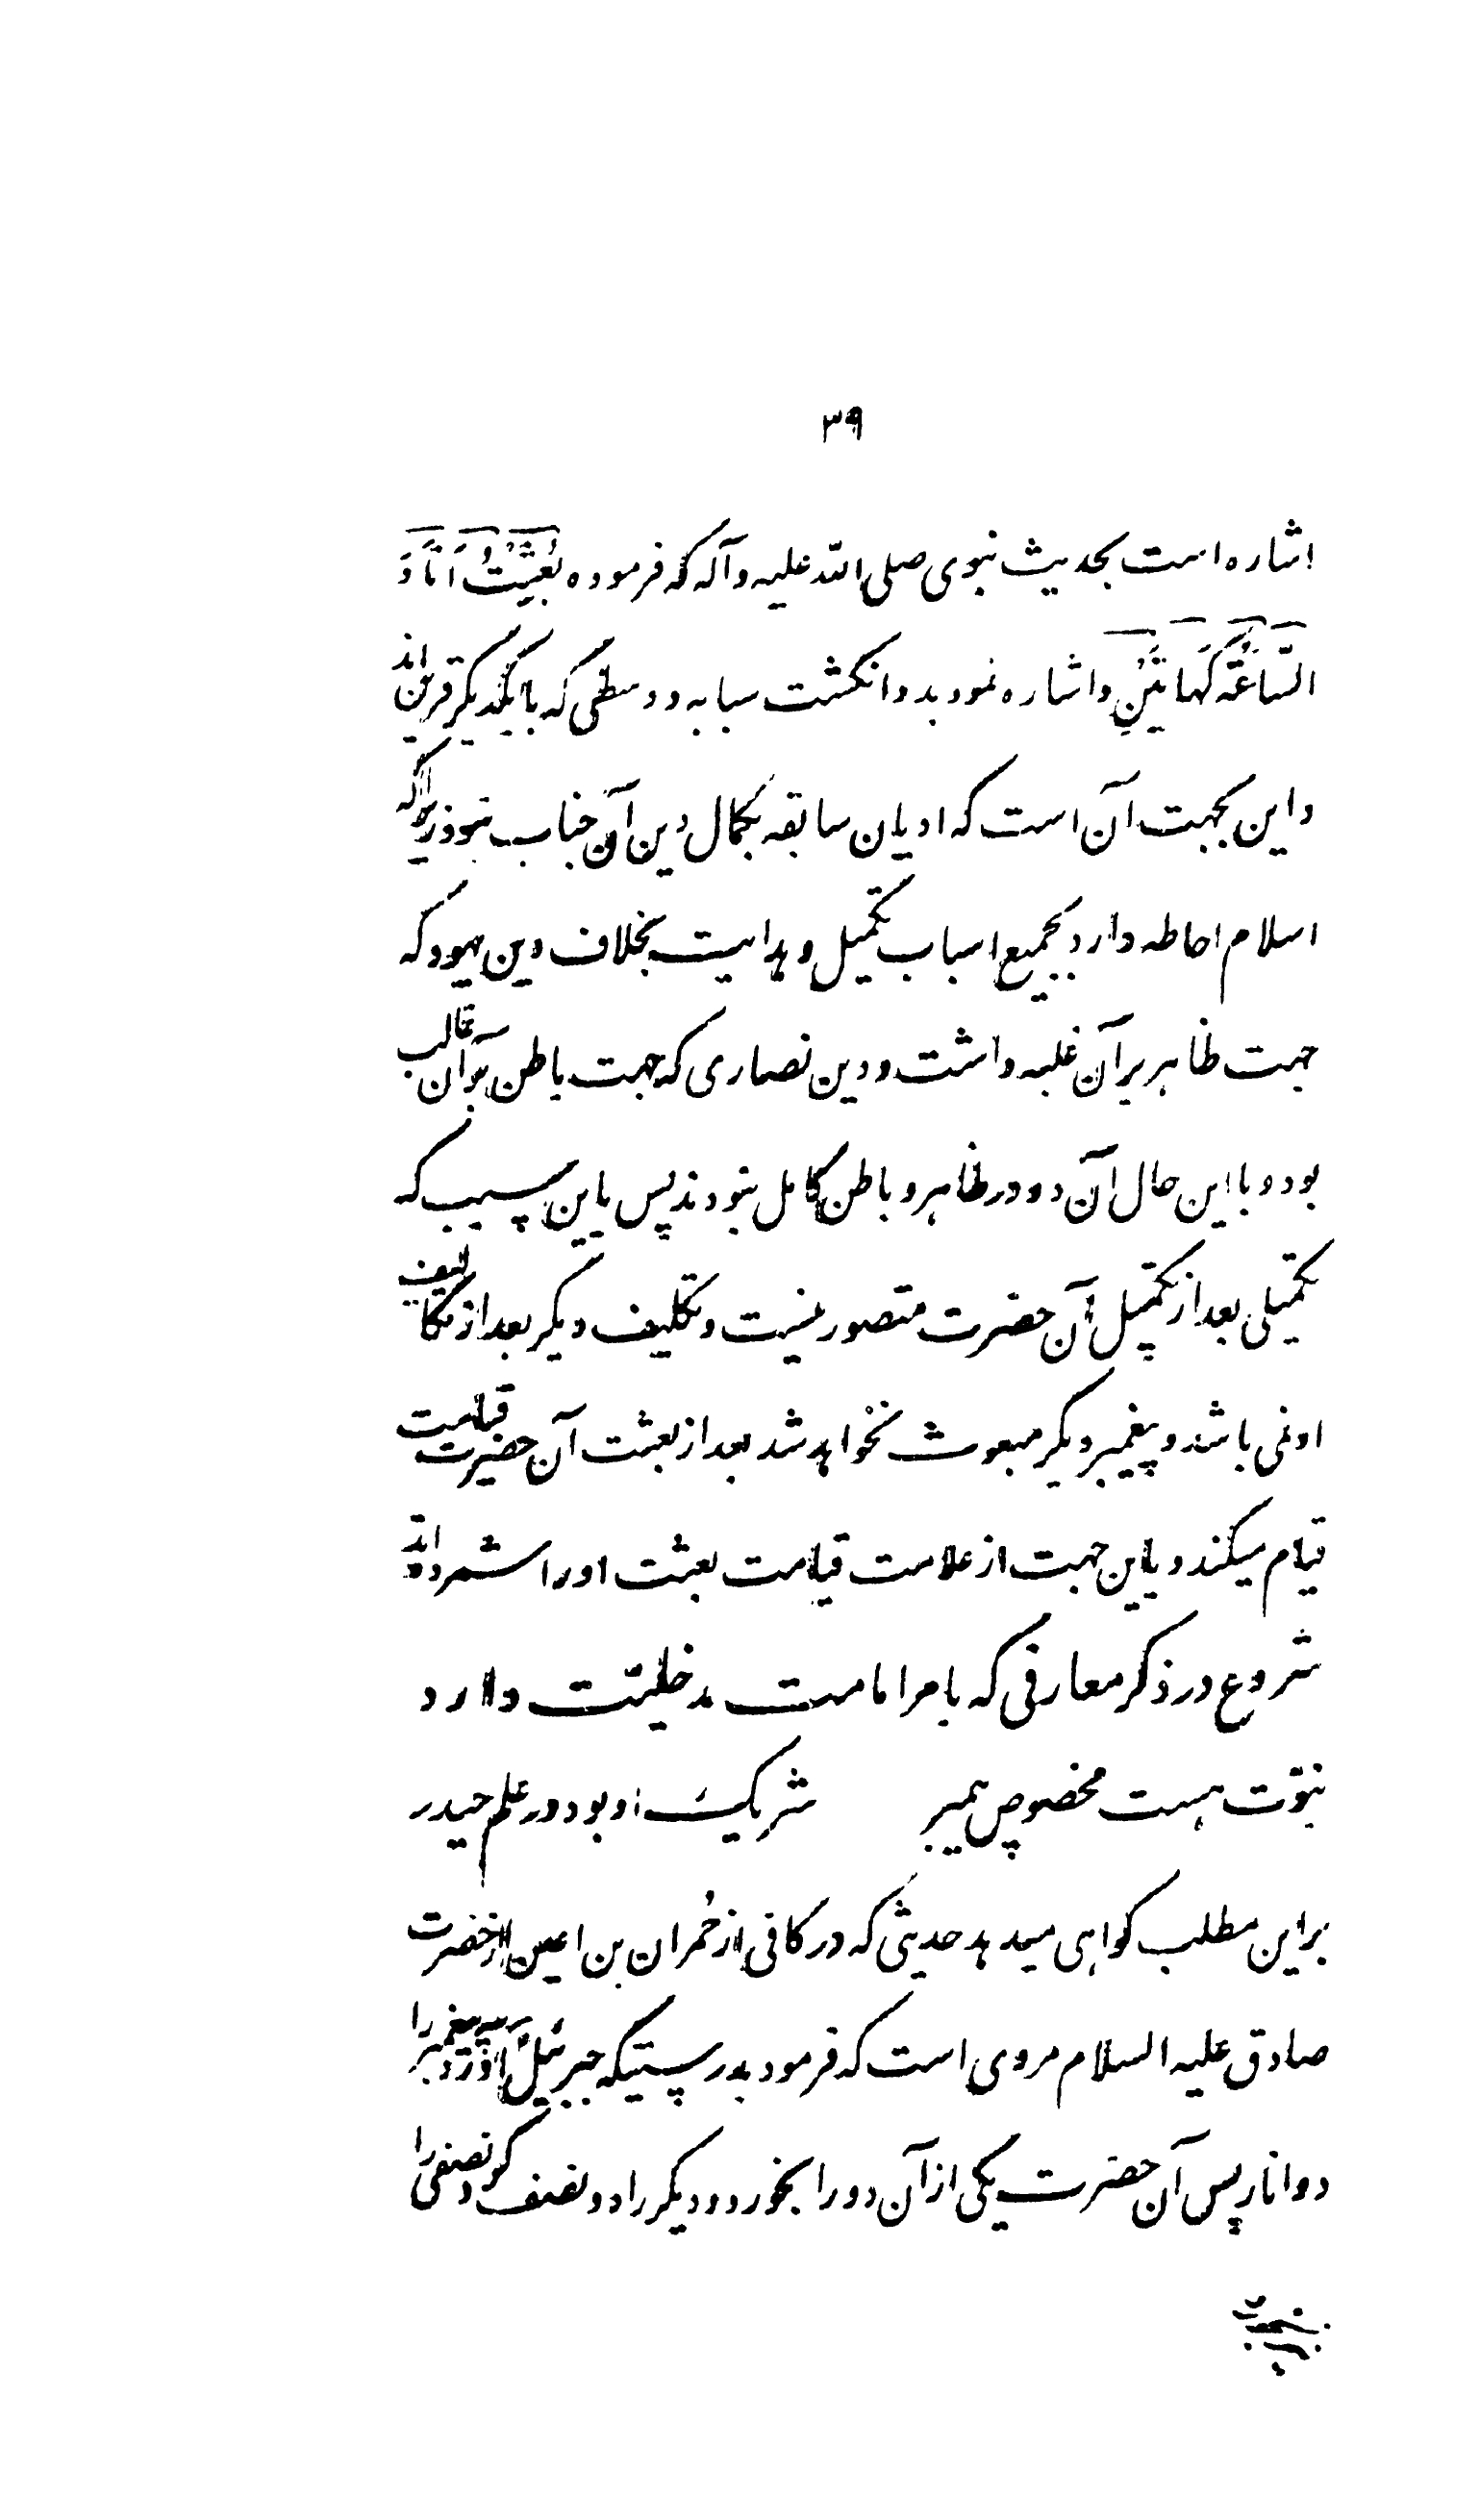 ۳۹
اشاره است بحدیث نبوی صلی الله علیه وآله که فرموده بُعِثْتُ اَنَا وَ
السّاعَةُ کَهاتَیْنِ واشاره نمود بدو انکشت سبابه و وسطی که بایکدیکر قرین اند
واین بجهت آن است که ادیان سابقه بکمال دین آن جناب نبود زیراکه
اسلام احاطه دارد بجمیع اسباب تکمیل و هدایت بخلاف دین یهود که
جهت ظاهر برآن غلبه داشت و دین نصاری که جهت باطن برآن غالب
بود و با این حال آن دو در ظاهر و باطن کامل نبودند پس باین سبب که
تکمیلی بعد از تکمیل آن حضرت متصور نیست و تکلیف دیکر بعد از تکالیف
او نمی باشد و پیغمبر دیکر مبعوث نخواهد شد بعد از بعثت آن حضرت قیامت
قیام میکند و باین جهت از علامت قیامت بعثت او را شمرده‌اند
شروع در ذکر معارفی که بامر امامت مدخلیّت دارد
نبوّت هست مخصوص پیمبر شریکِ او بود در علم حیدر
براین مطلب کواهی میدهد حدیثی که در کافی از حُمران بن اعین از حضرت
صادق علیه السلام مروی است که فرمود بدرستیکه جبرئیل آورد پیغمبر را
دو انار پس آن حضرت یکی از آن دو را بخورد و دیکر را دو نصف کرد نصفی را